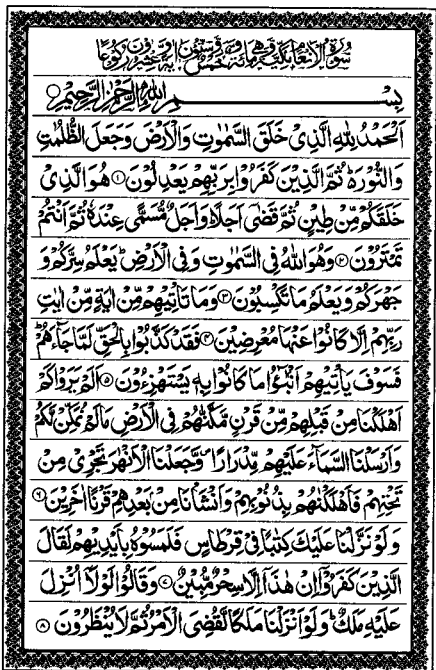 سُوۡرَةُ الۡاَنۡعَامِ مَكِّیَّةٌ وَّهِیَ مِائَةٌ وَّخَمۡسٌ وَّسِتُّوۡنَ اٰیَةً وَّعِشۡرُوۡنَ رُكُوۡعًا
بِسۡمِ اللّٰهِ الرَّحۡمٰنِ الرَّحِیۡمِ
اَلۡحَمۡدُ لِلّٰهِ الَّذِیۡ خَلَقَ السَّمٰوٰتِ وَالۡاَرۡضَ وَجَعَلَ الظُّلُمٰتِ
وَالنُّوۡرَ ۬ؕ ثُمَّ الَّذِیۡنَ كَفَرُوۡا بِرَبِّهِمۡ یَعۡدِلُوۡنَ ۝۱ هُوَ الَّذِیۡ
خَلَقَكُمۡ مِّنۡ طِیۡنٍ ثُمَّ قَضٰۤی اَجَلًا ؕ وَاَجَلٌ مُّسَمًّی عِنۡدَهٗ ثُمَّ اَنۡتُمۡ
تَمۡتَرُوۡنَ ۝۲ وَهُوَ اللّٰهُ فِی السَّمٰوٰتِ وَفِی الۡاَرۡضِ ؕ یَعۡلَمُ سِرَّكُمۡ وَ
جَهۡرَكُمۡ وَیَعۡلَمُ مَا تَكۡسِبُوۡنَ ۝۳ وَمَا تَاۡتِیۡهِمۡ مِّنۡ اٰیَةٍ مِّنۡ اٰیٰتِ
رَبِّهِمۡ اِلَّا كَانُوۡا عَنۡهَا مُعۡرِضِیۡنَ ۝۴ فَقَدۡ كَذَّبُوۡا بِالۡحَقِّ لَمَّا جَآءَهُمۡ ؕ
فَسَوۡفَ یَاۡتِیۡهِمۡ اَنۡۢبٰٓؤُا مَا كَانُوۡا بِهٖ یَسۡتَهۡزِءُوۡنَ ۝۵ اَلَمۡ یَرَوۡا كَمۡ
اَهۡلَكۡنَا مِنۡ قَبۡلِهِمۡ مِّنۡ قَرۡنٍ مَّكَّنّٰهُمۡ فِی الۡاَرۡضِ مَا لَمۡ نُمَكِّنۡ لَّكُمۡ
وَاَرۡسَلۡنَا السَّمَآءَ عَلَیۡهِمۡ مِّدۡرَارًا ۪ وَّجَعَلۡنَا الۡاَنۡهٰرَ تَجۡرِیۡ مِنۡ
تَحۡتِهِمۡ فَاَهۡلَكۡنٰهُمۡ بِذُنُوۡبِهِمۡ وَاَنۡشَاۡنَا مِنۡۢ بَعۡدِهِمۡ قَرۡنًا اٰخَرِیۡنَ ۝۶
وَلَوۡ نَزَّلۡنَا عَلَیۡكَ كِتٰبًا فِیۡ قِرۡطَاسٍ فَلَمَسُوۡهُ بِاَیۡدِیۡهِمۡ لَقَالَ
الَّذِیۡنَ كَفَرُوۡۤا اِنۡ هٰذَاۤ اِلَّا سِحۡرٌ مُّبِیۡنٌ ۝۷ وَقَالُوۡا لَوۡلَاۤ اُنۡزِلَ
عَلَیۡهِ مَلَكٌ ؕ وَلَوۡ اَنۡزَلۡنَا مَلَكًا لَّقُضِیَ الۡاَمۡرُ ثُمَّ لَا یُنۡظَرُوۡنَ ۝۸